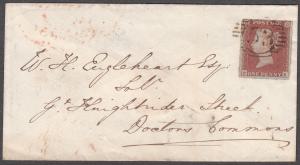 POSTAGE
ONE PENNY
W. H. Engleheart Esq.
Solr
Gt Knightrider Street
Doctors Commons